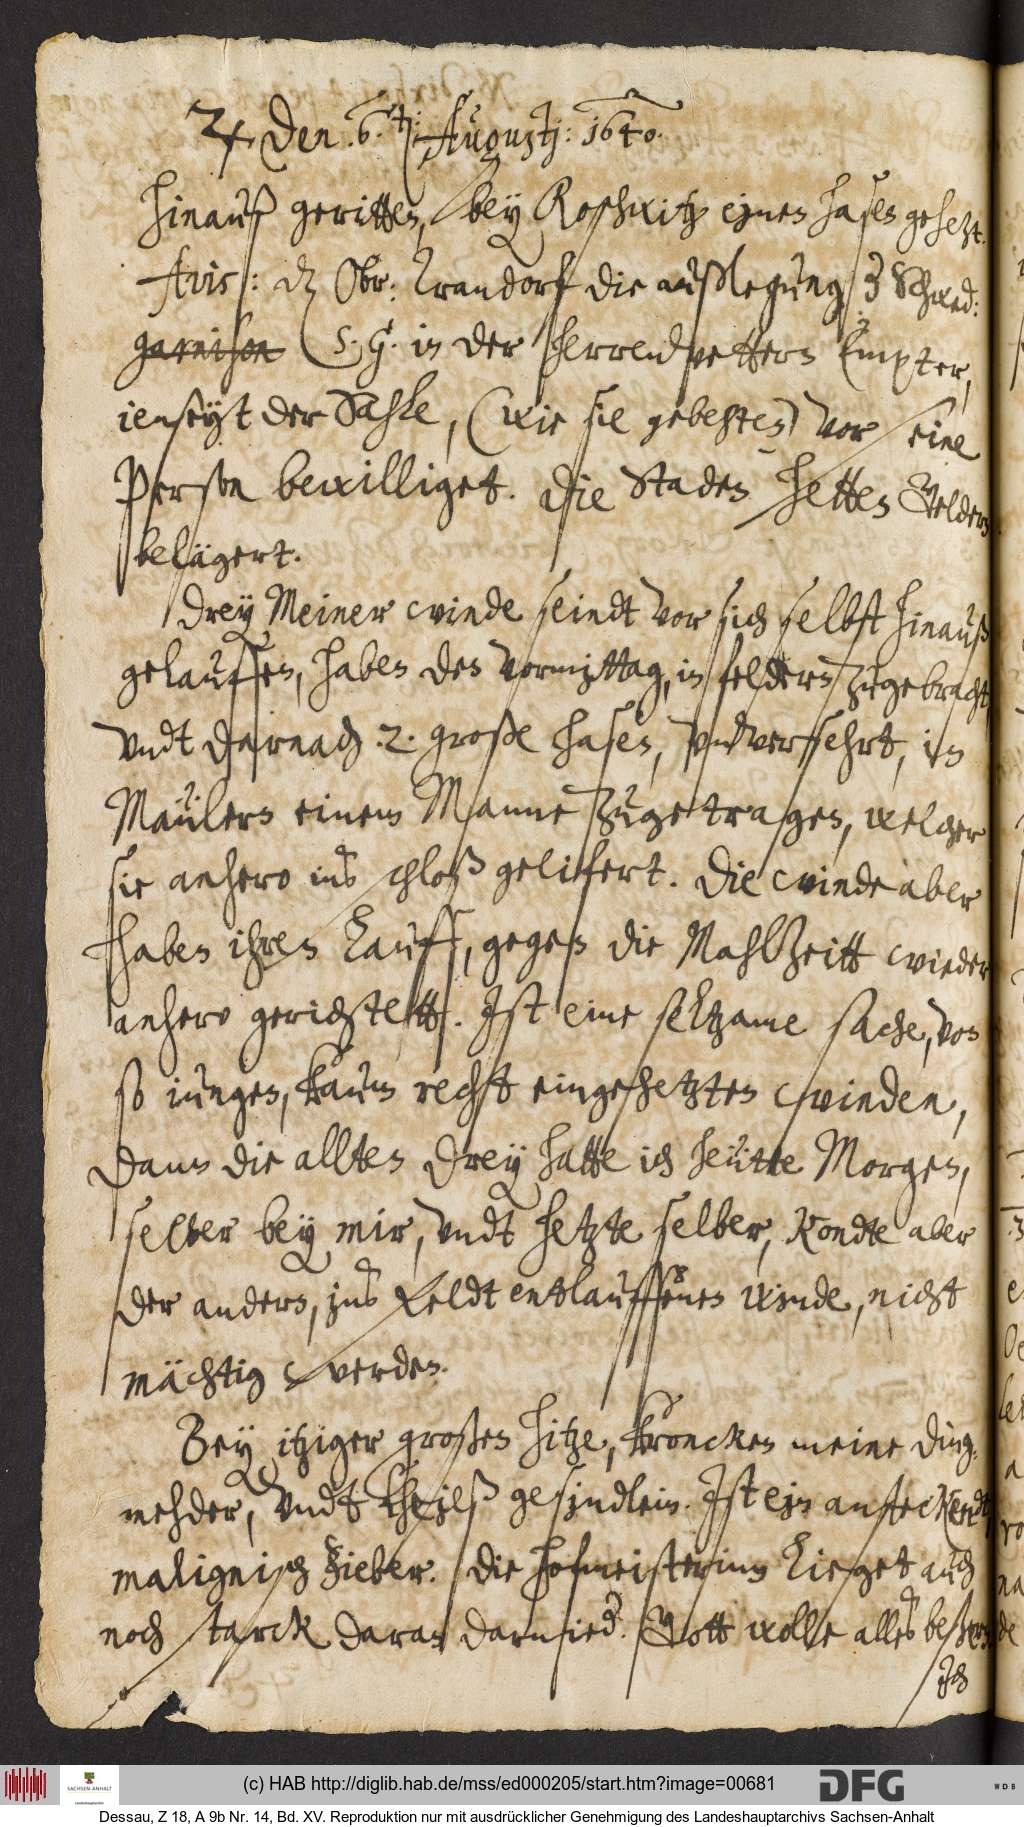 ♃ den .6. t: Augustj: 1640.
hinauß geritten, bey Roschwitz einen hasen gehezt.
Avis: dz Obr: Trandorf die außlegung 3 Schwed:
garnison S. G. in der herrenvettern Empter,
ienseyt der Sahle, (wie sie gebehten) vor eine
Person bewilliget. Die Staden hetten Geldern
belägert.
Drey Meiner winde seindt vor sich selbst hinauß
gelauffen, haben den vormittag, in feldern zugebracht,
vndt darnach .2. große hasen, vnversehrt, in
Mäulern einem Manne zugetragen, welcher
sie anhero inß schloß gelifert. Die winde aber
haben ihren Lauff, gegen die Mahlzeitt wieder
anhero gerichtett. Ist eine seltzame sache, von
so iungen, kaum recht eingehetzten winden,
dann die allten drey hatte ich heütte Morgen,
selber bey mir, vndt hetzte selber, Kondte aber
der andern, inß Feldt entlauffenen winde, nicht
mächtig werden.
Bey itziger großen hitze, kroncken meine
vndt gesindlein. Ist ein ansteckendt
malignisch Fieber. Die hofmeisterinn lieget auch
noch starck daran darnied. Gott wolle alleß beßern
Ich
(c) HAB http://diglib.hab.de/mss/ed000205/start.htm?image=00681
SACHSEN-ANHALT
Landeshauptarchiv
DFG
WDB
Dessau, Z 18, A 9b Nr. 14, Bd. XV. Reproduktion nur mit ausdrücklicher Genehmigung des Landeshauptarchivs Sachsen-Anhalt